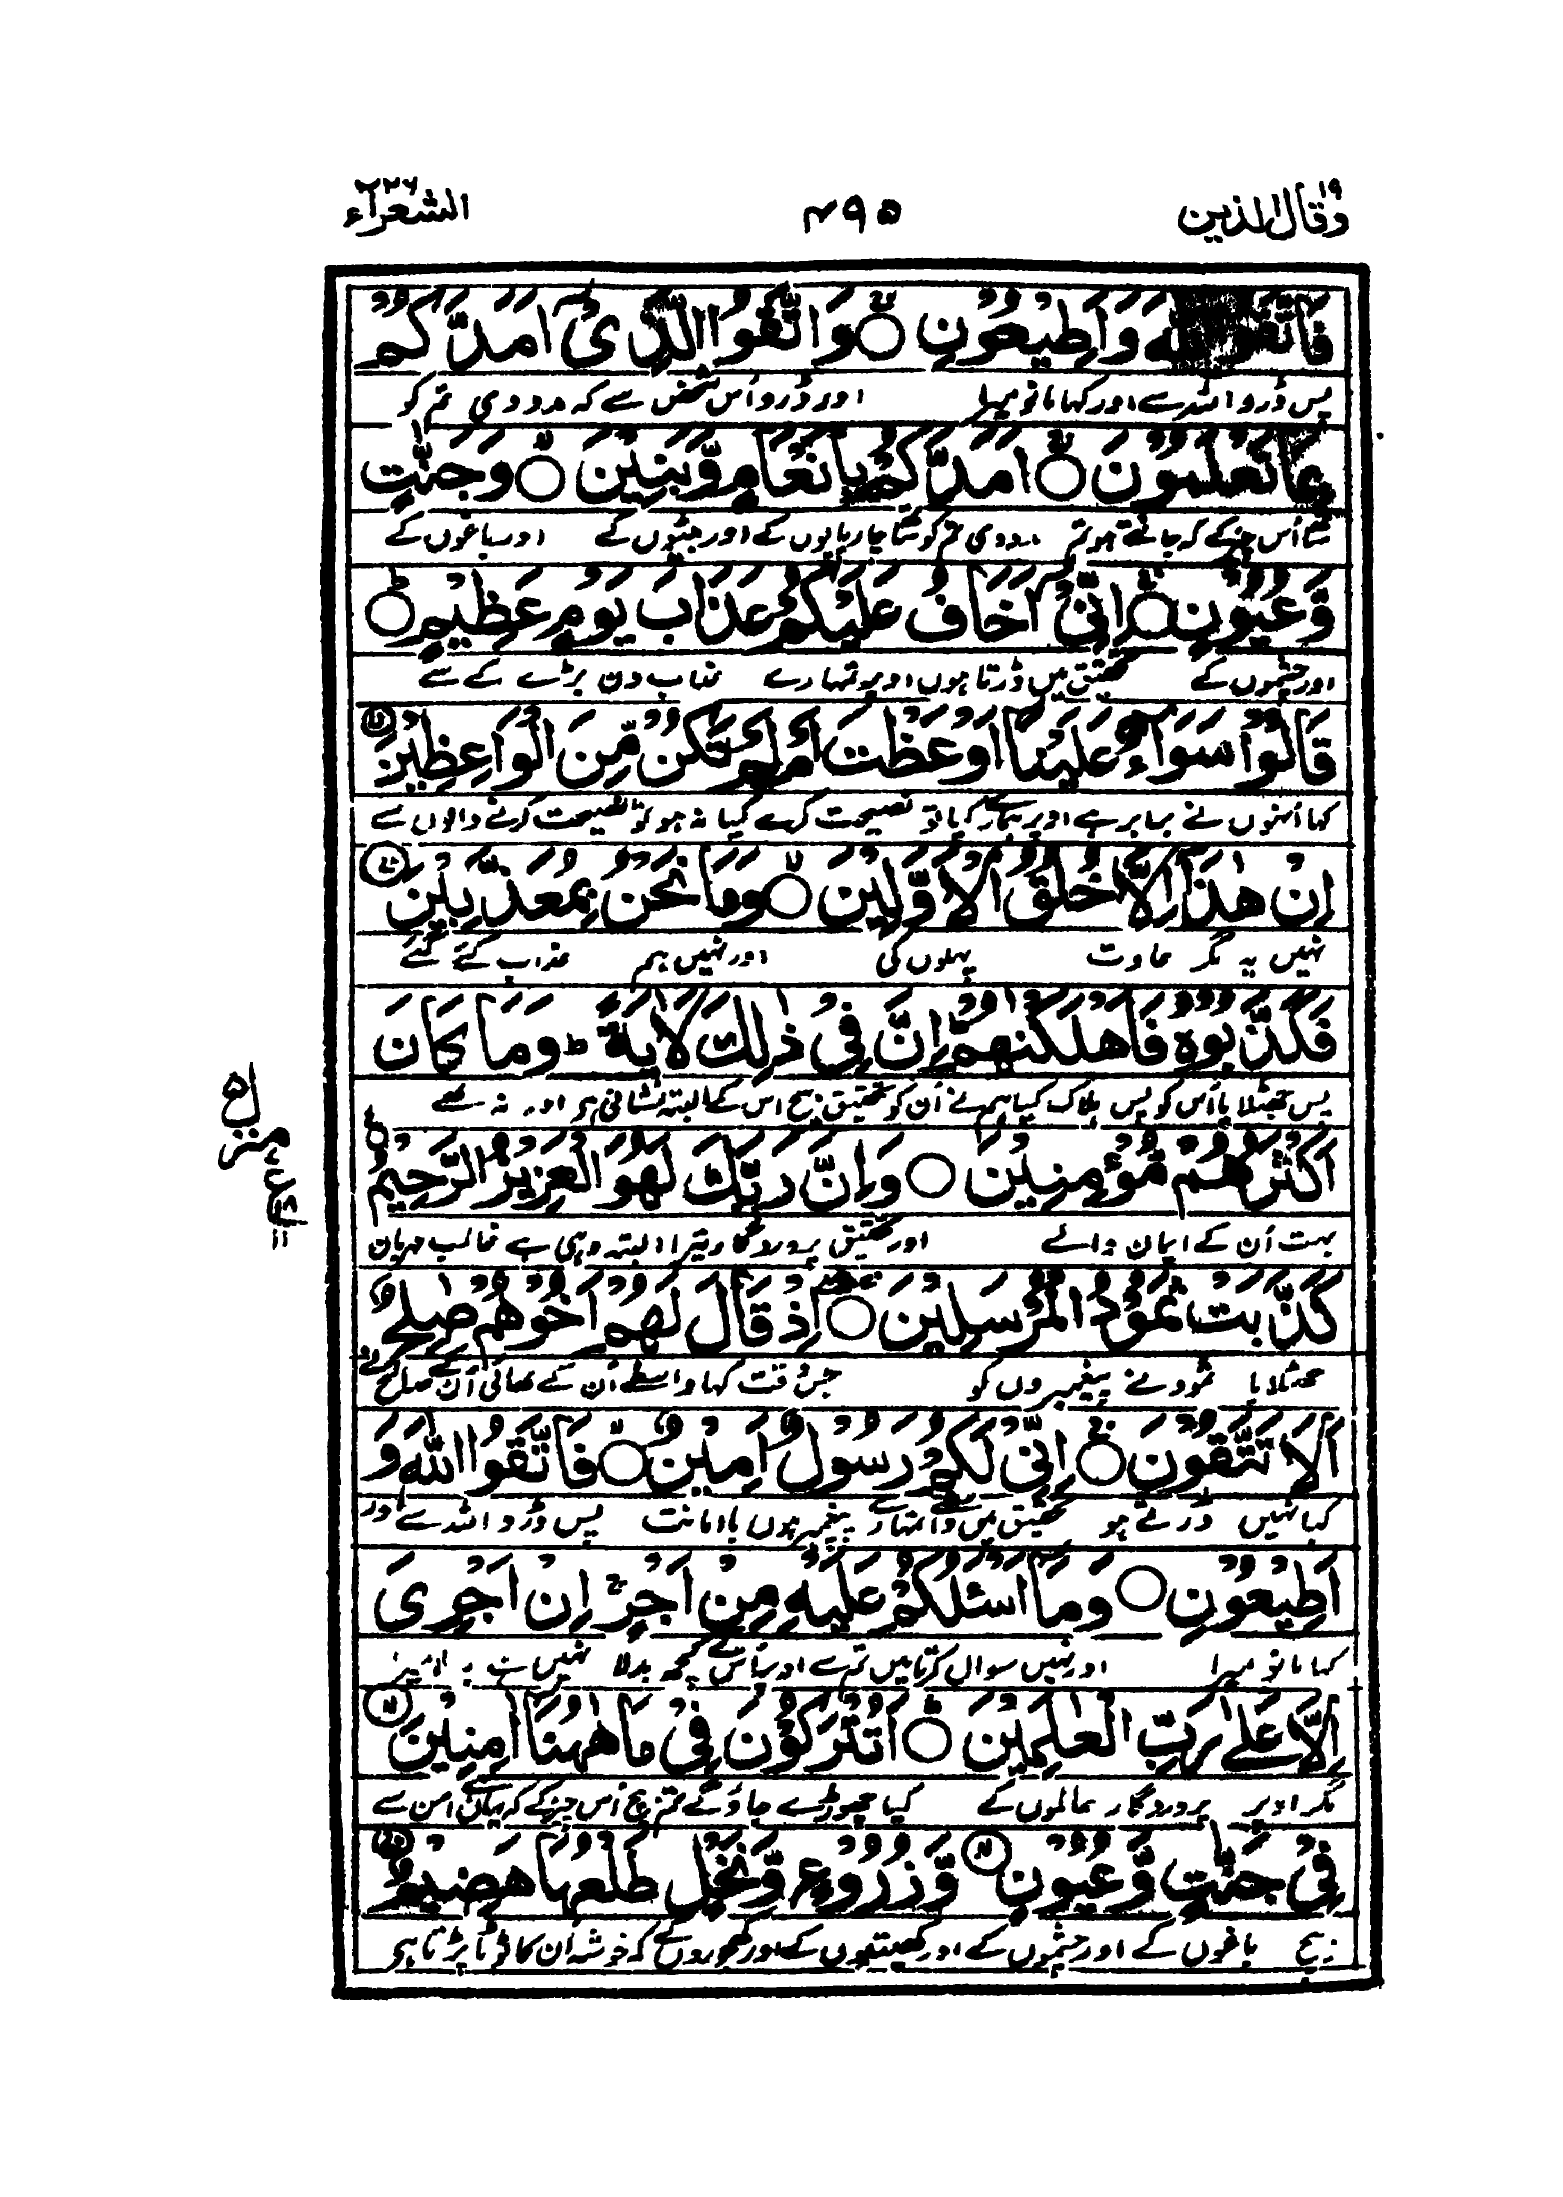 وقال الذین ۱۹
۴۹۵
الشعراء ۲۶
فَاتَّقُوا اللّٰهَ وَاَطِیْعُوْنِ ○ وَاتَّقُوا الَّذِیْۤ اَمَدَّكُمْ
پس ڈرو اللہ سے اور کہا مانو میرا اور ڈرو اُس شخص سے کہ مدد دی تم کو
بِمَا تَعْلَمُوْنَ ○ اَمَدَّكُمْ بِاَنْعَامٍ وَّبَنِیْنَ ○ وَجَنّٰتٍ
ساتھ اُس چیز کے کہ جانتے ہو تم مدد دی تم کو ساتھ چارپایوں کے اور بیٹوں کے اور باغوں کے
وَّعُیُوْنٍ ○ اِنِّیْۤ اَخَافُ عَلَیْكُمْ عَذَابَ یَوْمٍ عَظِیْمٍ ○
اور چشموں کے تحقیق میں ڈرتا ہوں اوپر تمہارے عذاب دن بڑے کے سے
قَالُوْا سَوَآءٌ عَلَیْنَاۤ اَوَعَظْتَ اَمْ لَمْ تَكُنْ مِّنَ الْوَاعِظِیْنَ
کہا اُنہوں نے برابر ہے اوپر ہمارے کیا تو نصیحت کرے کیا نہ ہو تو نصیحت کرنے والوں سے
اِنْ هٰذَاۤ اِلَّا خُلُقُ الْاَوَّلِیْنَ ○ وَمَا نَحْنُ بِمُعَذَّبِیْنَ
نہیں یہ مگر عادت پہلوں کی اور نہیں ہم عذاب کئے گئے
فَكَذَّبُوْهُ فَاَهْلَكْنٰهُمْ اِنَّ فِیْ ذٰلِكَ لَاٰیَةً ط وَمَا كَانَ
پس جھٹلایا اُس کو پس ہلاک کیا ہم نے اُن کو تحقیق بیچ اس کے البتہ نشانی ہے اور نہ تھے
اَكْثَرُهُمْ مُّؤْمِنِیْنَ ○ وَاِنَّ رَبَّكَ لَهُوَ الْعَزِیْزُ الرَّحِیْمُ
بہت اُن کے ایمان والے اور تحقیق پروردگار تیرا البتہ وہی ہے غالب مہربان
كَذَّبَتْ ثَمُوْدُ الْمُرْسَلِیْنَ ○ اِذْ قَالَ لَهُمْ اَخُوْهُمْ صٰلِحٌ
جھٹلایا ثمود نے پیغمبروں کو جس وقت کہا واسطے اُن کے بھائی اُن کے صالح نے
اَلَا تَتَّقُوْنَ ○ اِنِّیْ لَكُمْ رَسُوْلٌ اَمِیْنٌ ○ فَاتَّقُوا اللّٰهَ وَ
کیا نہیں ڈرتے ہو تحقیق میں واسطے تمہارے پیغمبر ہوں باامانت پس ڈرو اللہ سے اور
اَطِیْعُوْنِ ○ وَمَاۤ اَسْئَلُكُمْ عَلَیْهِ مِنْ اَجْرٍ ج اِنْ اَجْرِیَ
کہا مانو میرا اور نہیں سوال کرتا میں تم سے اوپر اُس کے کچھ بدلا نہیں
اِلَّا عَلٰی رَبِّ الْعٰلَمِیْنَ ○ اَتُتْرَكُوْنَ فِیْ مَا هٰهُنَاۤ اٰمِنِیْنَ
مگر اوپر پروردگار عالموں کے کیا چھوڑے جاؤ گے تم بیچ اُس چیز کے کہ یہاں ہے امن سے
فِیْ جَنّٰتٍ وَّعُیُوْنٍ وَّزُرُوْعٍ وَّنَخْلٍ طَلْعُهَا هَضِیْمٌ
بیچ باغوں کے اور چشموں کے اور کھیتیوں کے اور کھجوروں کے کہ خوشہ اُن کا ٹوٹا پڑتا ہے
منزل ۵
ع
۱۸
۱۱